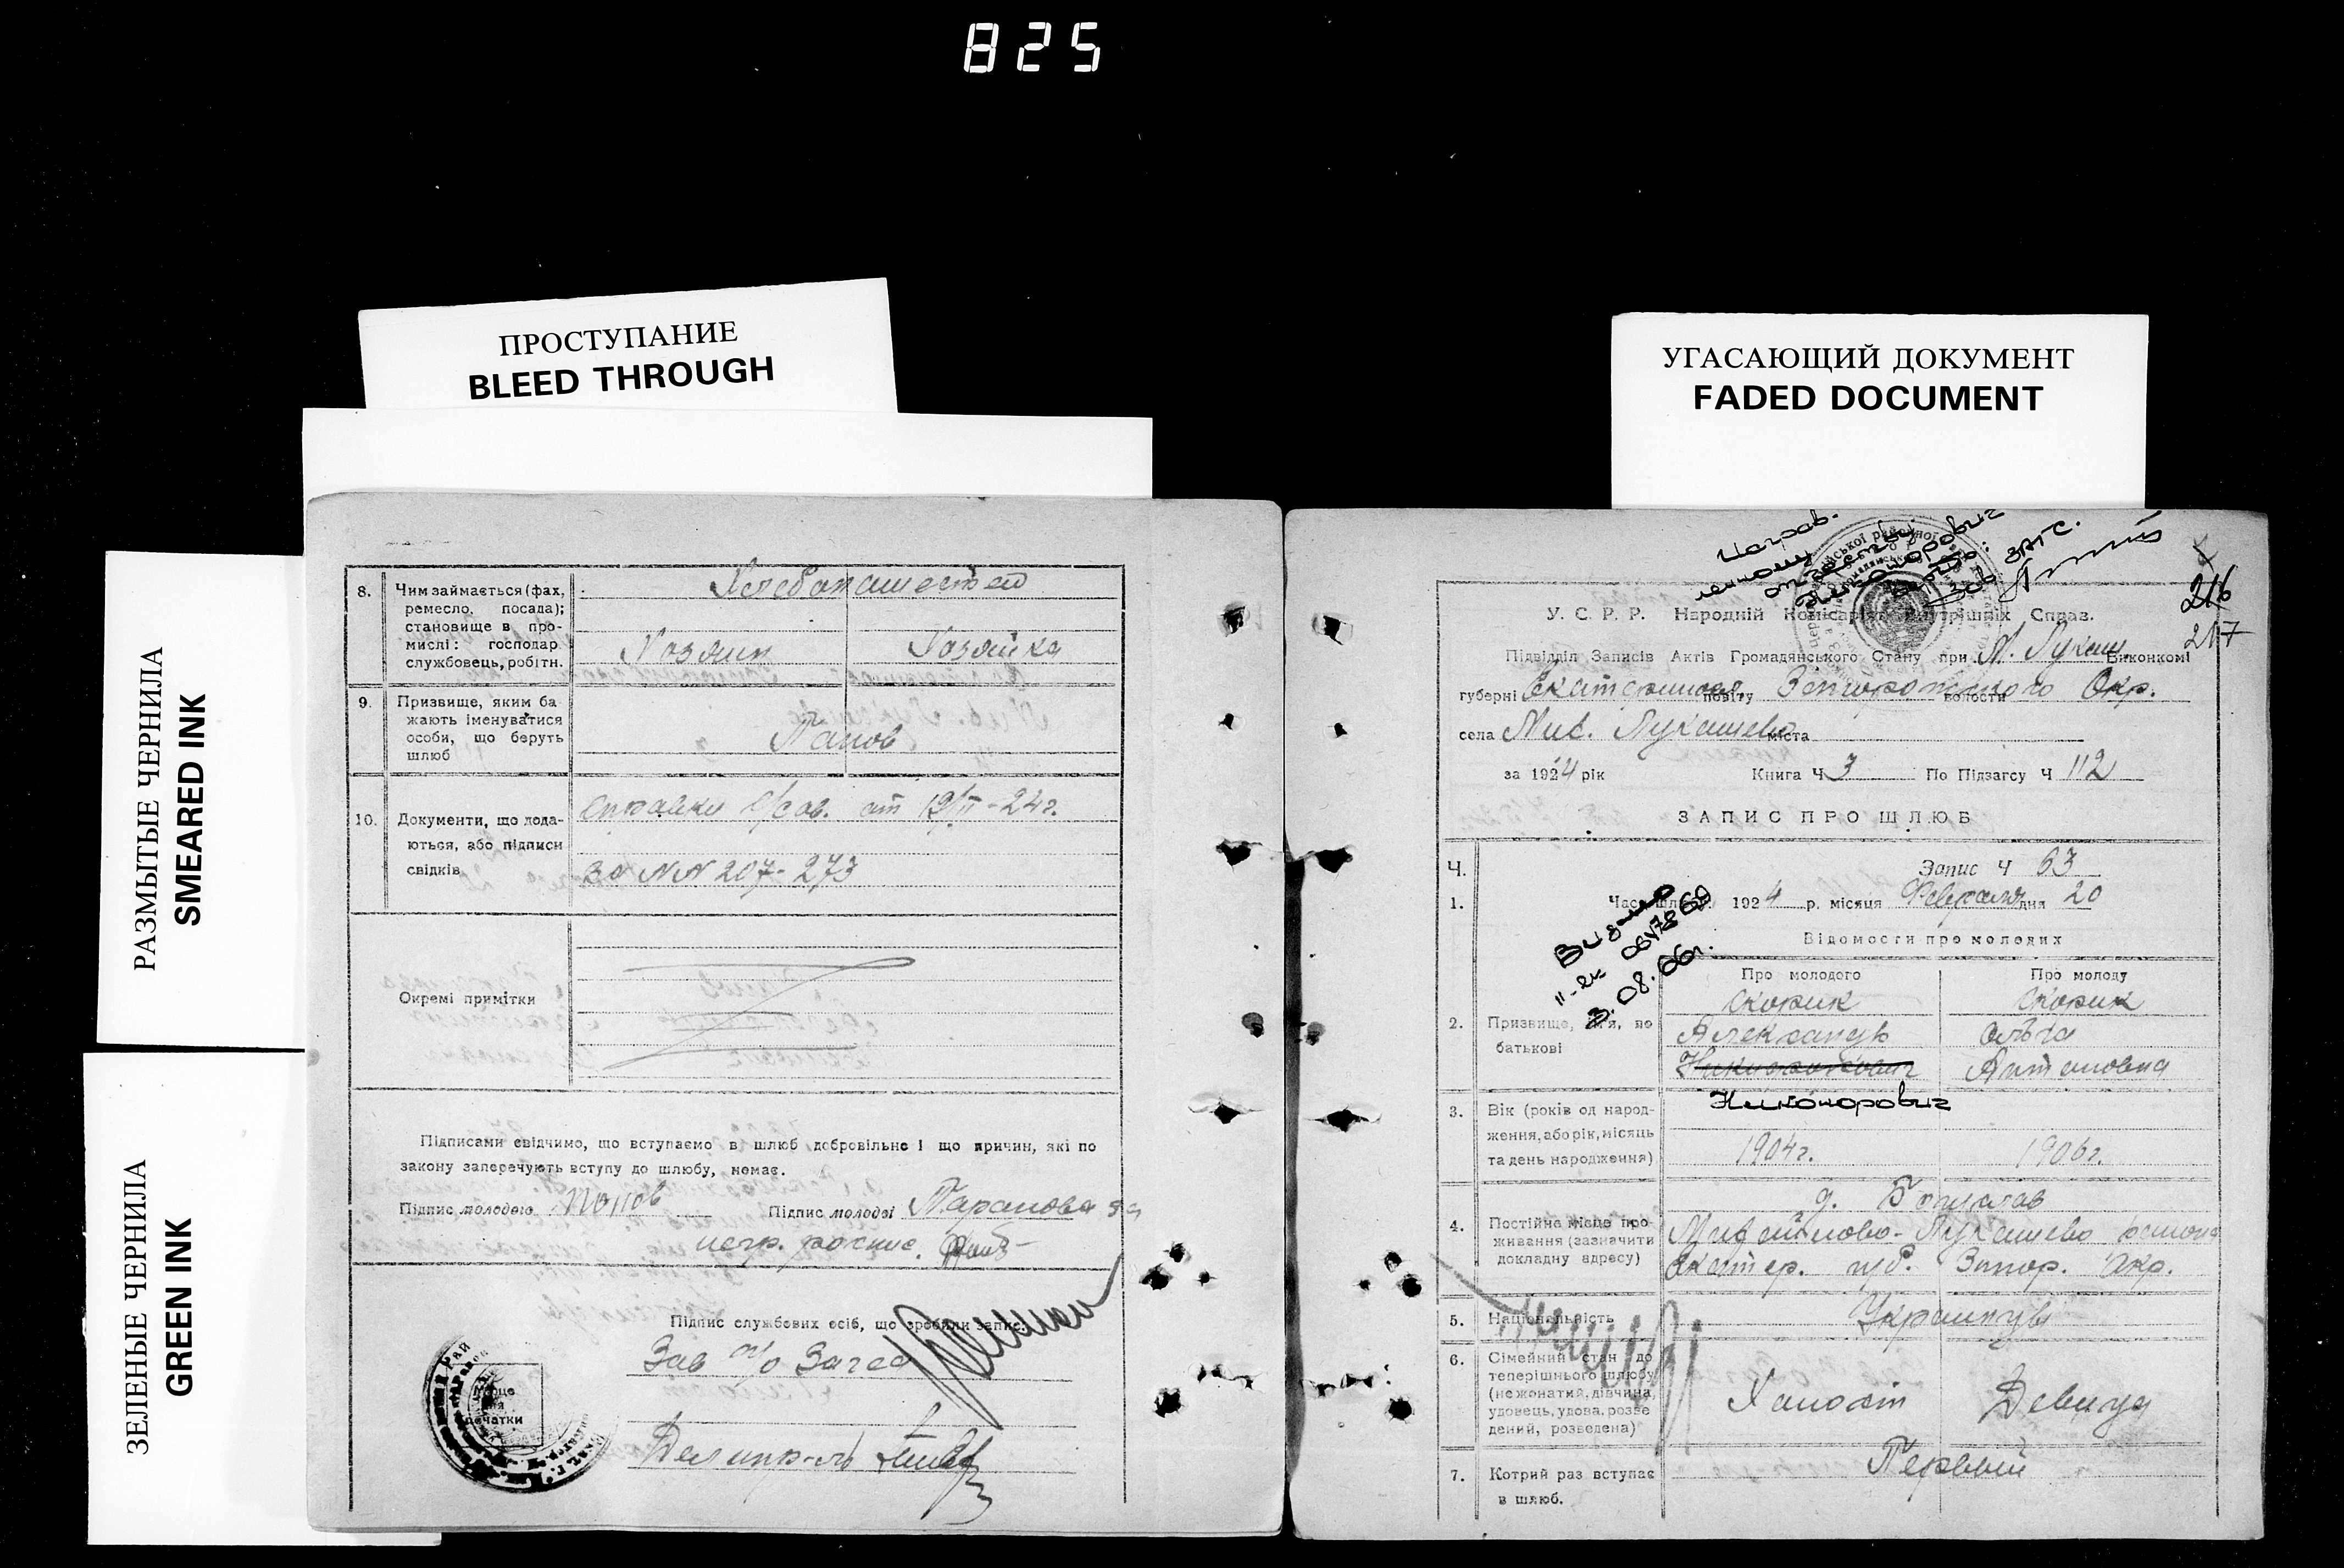 825
ПРОСТУПАНИЕ
BLEED THROUGH
УГАСАЮЩИЙ ДОКУМЕНТ
FADED DOCUMENT
РАЗМЫТЫЕ ЧЕРНИЛА
SMEARED INK
ЗЕЛЕНЫЕ ЧЕРНИЛА
GREEN INK
8. Чим займається (фах,
ремесло, посада);
становище в про-
мислі: господар
службовець, робітн.
Хлебопашестей
Хозяин Хозяйка
9. Призвище, яким ба
жають іменуватися
особи, що беруть
шлюб
Попов
10. Документи, що дода-
ються, або підписи
свідків
справки с/сов. от 19/II-24г.
за NN 207-273
Окремі примітки
Підписами свідчимо, що вступаємо в шлюб добровільне і що причин, які по
закону заперечують вступу до шлюбу, немає.
Підпис молодого Попов Підпис молодої Таранова за
негр. роспис.
Підпис службових осіб, що зробили запис.
Зав п/о Загса
Місце
для
печатки
Делопр-ль
Исправ.
отчеству
Никонорович
верно:
Зав. ЗАГС.
216
217
У. С. Р. Р. Народній Комісаріят Внутрішніх Справ.
Підвідділ Записів Актів Громадянського Стану при М. Лукаш. Виконкомі
губерні Екатеринос. повіту Запорожского волости Окр.
села Мих. Лукашево міста
за 1924 рік Книга Ч 3 По Підзагсу Ч 112
ЗАПИС ПРО ШЛЮБ
Ч. Запис Ч 63
1. Час шлюбу: 1924 р. місяця Февраля дня 20
Видано
II-ек 0678
3.08.66г.
Відомости про молодих
Про молодого Про молоду
2. Призвище, ім'я, по
батькові
Скорик Скорик
Александр Ольга
Антоновна
Никонорович
3. Вік (років од народ-
ження, або рік, місяць
та день народження)
1904г. 1906г.
4. Постійне місце про-
живання (зазначити
докладну адресу)
д. Богуслав
Михайлово-Лукашево района
Екатер. губ. Запор. Окр.
5. Національність Украинцы
6. Сімейний стан до
теперішнього шлюбу
(не жонатий, дівчина,
удовець, удова, розве
дений, розведена)
Холост Девица
7. Котрий раз вступає
в шлюб.
Первый